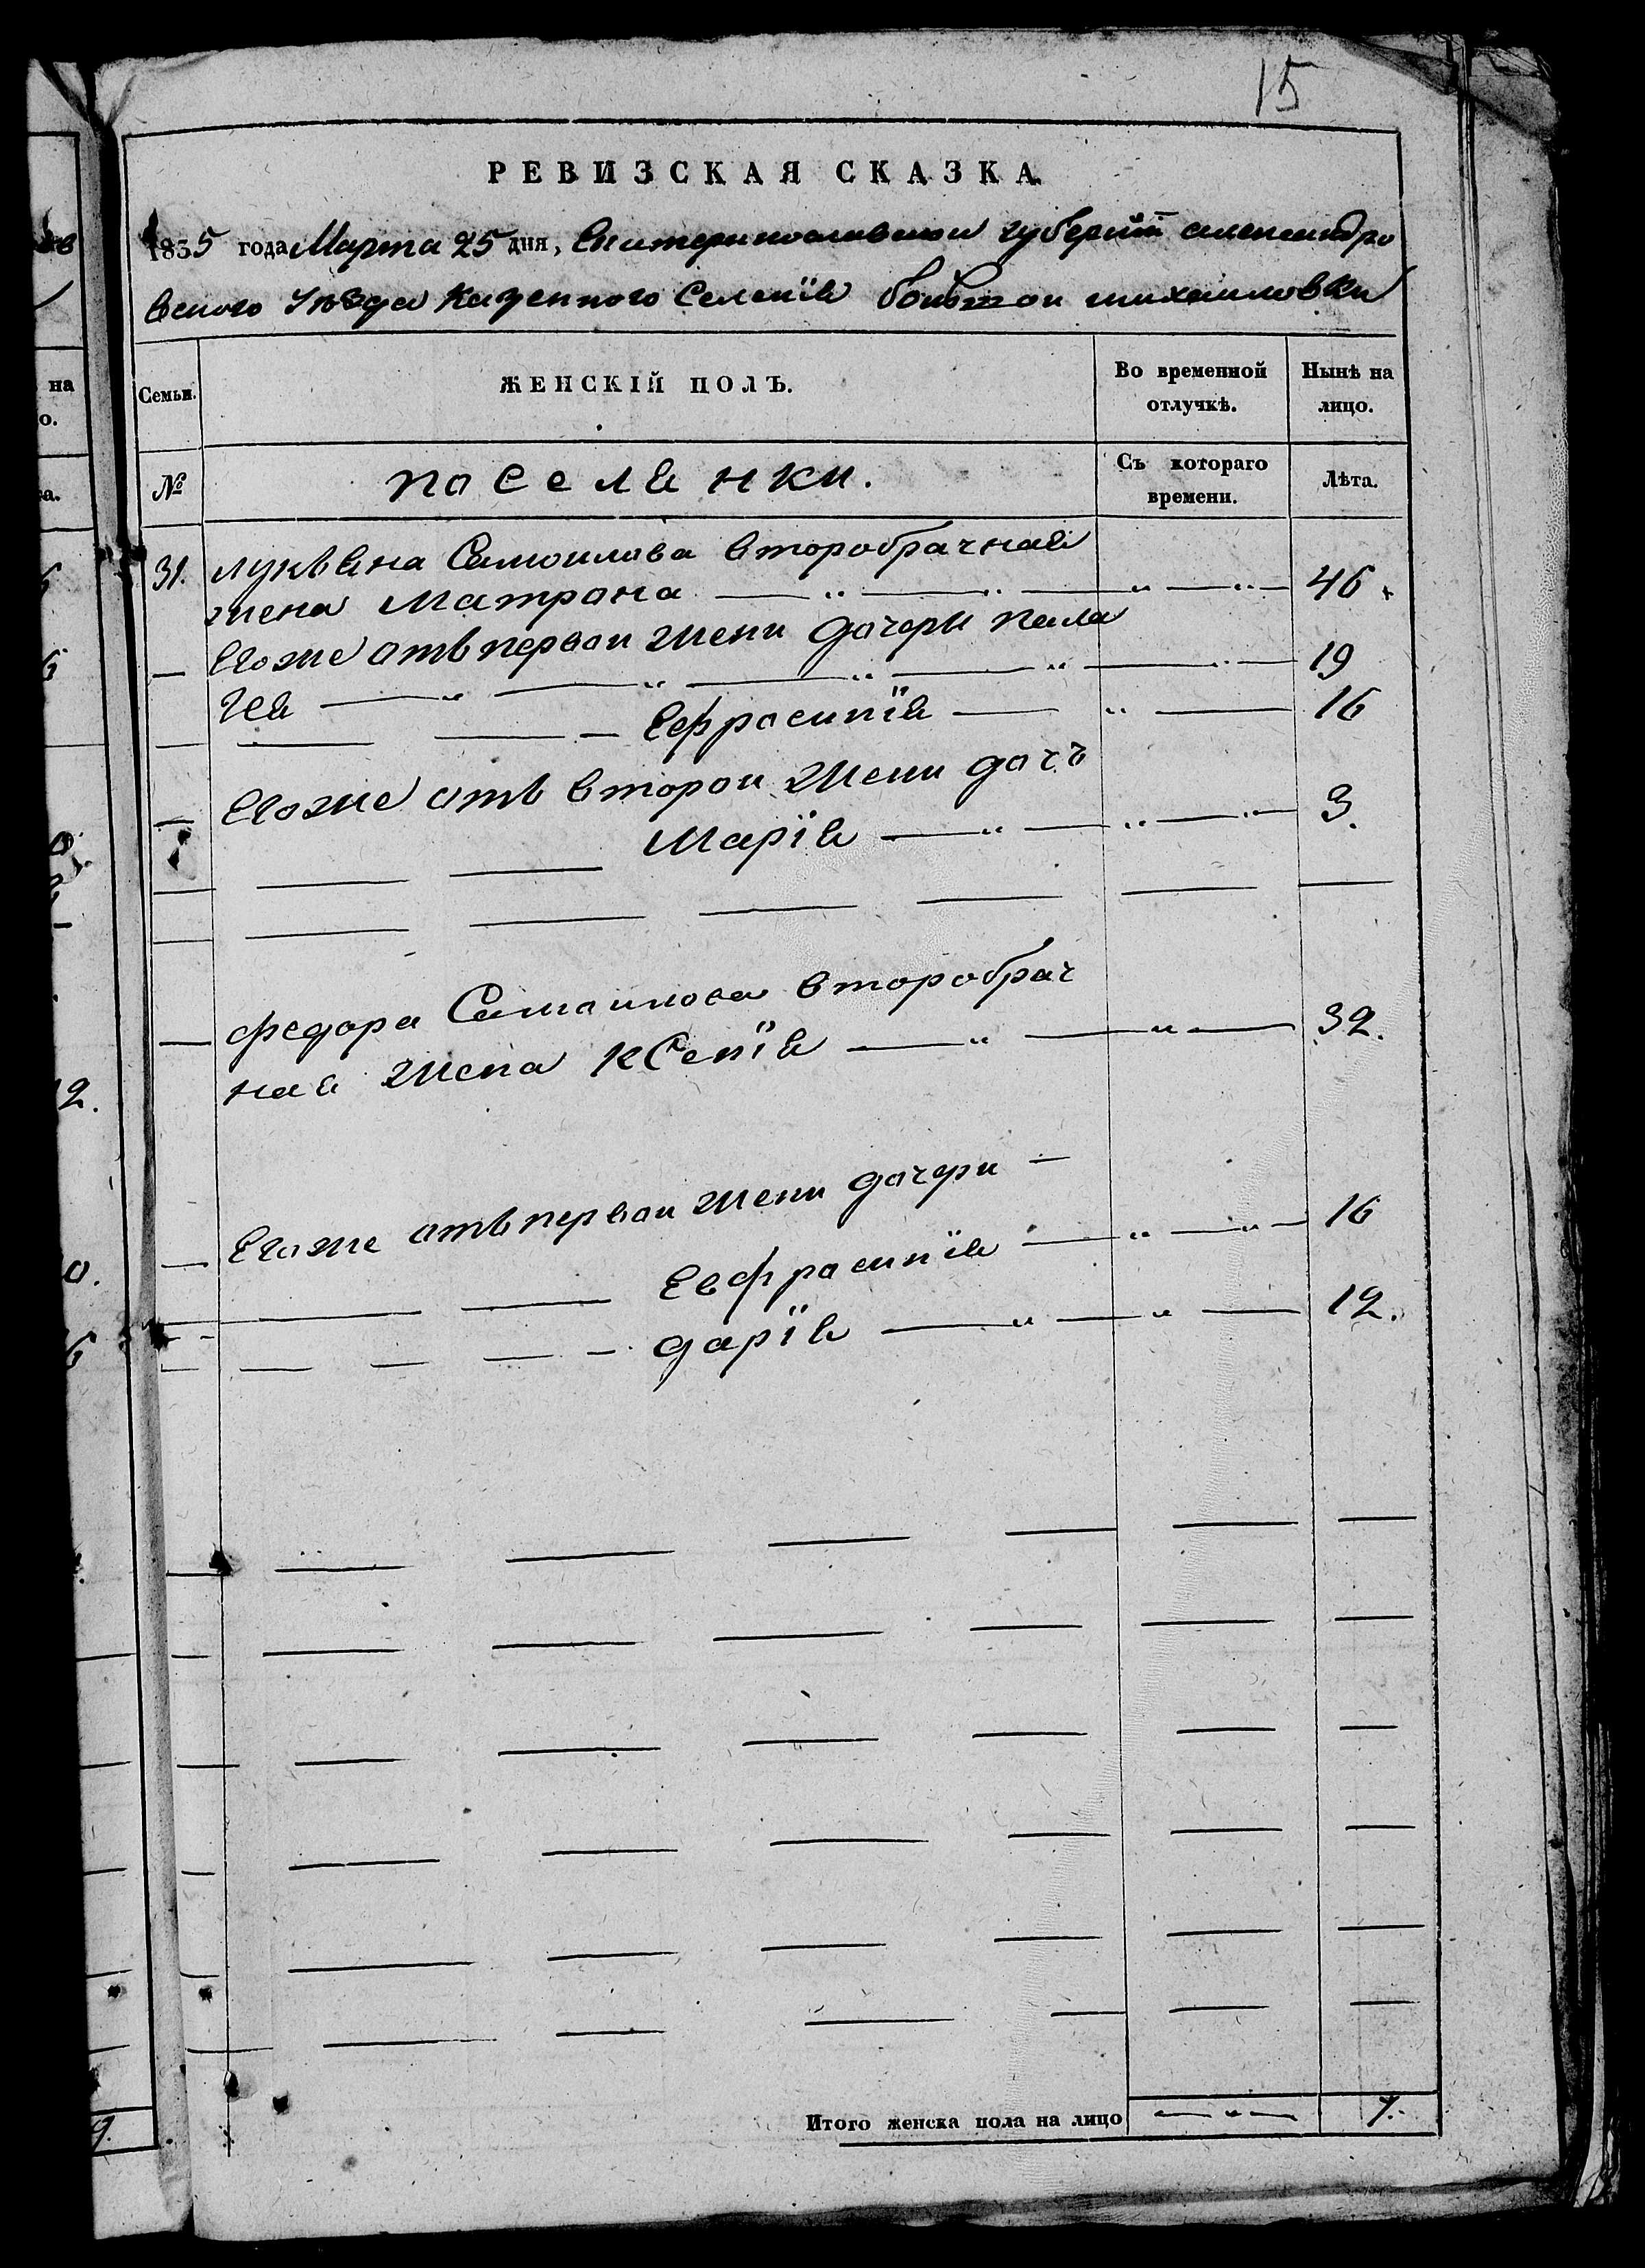 15
РЕВИЗСКАЯ СКАЗКА
1835 года Марта 25 дня, Екатеринославской губерніи александро
вского Уѣзда Казенного Селенія большой михайловки
Семьи.
ЖЕНСКІЙ ПОЛЪ.
Во временной отлучкѣ.
Нынѣ на лицо.
№
поселянки.
Съ котораго времени.
Лѣта.
31. лукьяна Самоилова второбрачная
жена Матрона 46
Егоже отъ первой жени дочери пела
гея 19
Ефросинія 16
Егоже отъ второй жени дочъ
Марія 3.
федора Самоилова второбрач
ная жена Ксенія 32.
Егоже отъ первой жени дочери
Евфросинія 16
дарія 12.
Итого женска пола на лицо 7.